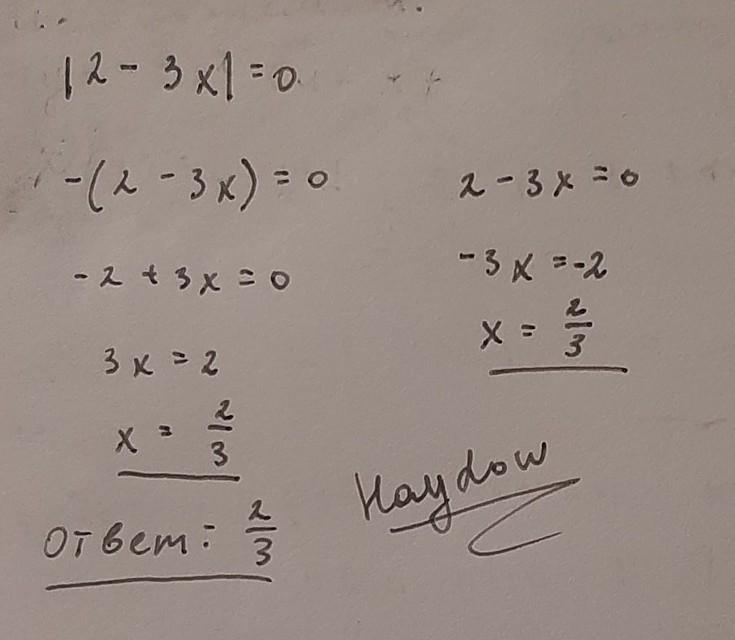 |2 - 3x| = 0
-(2 - 3x) = 0
-2 + 3x = 0
3x = 2
x = 2/3
2 - 3x = 0
-3x = -2
x = 2/3
Ответ: 2/3
Haydow